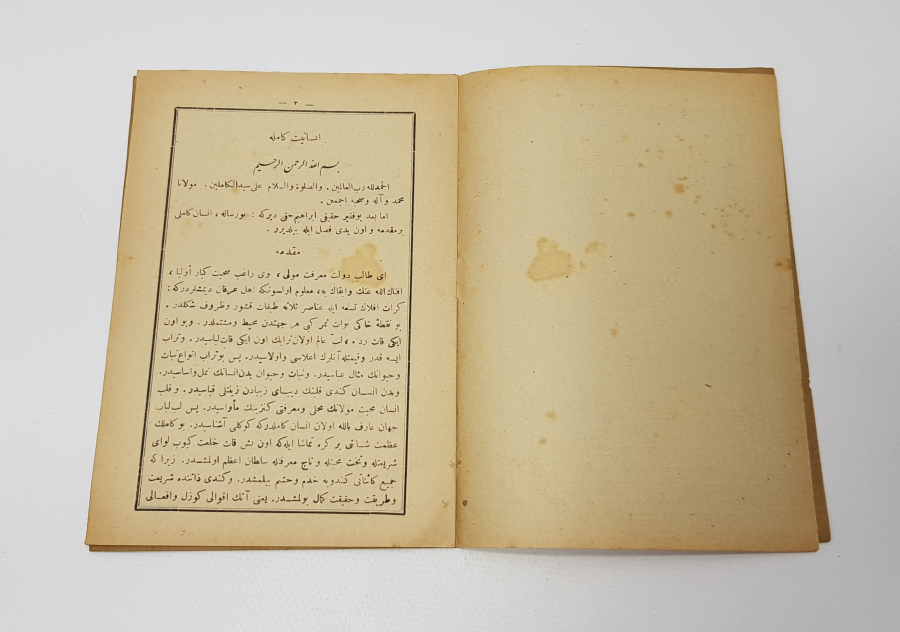 — ٢ —
انسانیت كامله
بسم الله الرحمن الرحیم
الحمدلله رب العالمین . والصلوة والسلام علی سیدالكاملین . مولانا
محمد وآله وصحبه اجمعین .
اما بعد بوفقیر حقیقی ابراهیم حقی دیركه : بورساله ، انسان كاملی
برمقدمه و اون یدی فصل ایله بیلدیرر .
مقدمه
ای طالب دولت معرفت مولی ، وی راغب صحبت كبار أولیا ،
افناك الله عنك وابقاك به ، معلوم اولسونكه اهل عرفان دیمشلردركه :
كرات افلاك تسعه ایله عناصر ثلاثه طبقات قشور وظروف شكلدر .
بو نقطۀ خاكی نوات ثمر كبی هر جهتدن محیط ومشتملدر . وبو اون
ایكی قات ، لبّ عالم اولان ترابك اون ایكی قات لباسیدر . وتراب
ایسه قدر وقیمتله آنلرك اعلاسی واولاسیدر . پس بوتراب انواع نبات
وحیوانك مثال عباسیدر . ونبات وحیوان بدن انسانك واساسیدر .
وبدن انسان كندی قلبنك دیبای زیبادن زینتلی قباسیدر . و قلب
انسان محبت مولانك محلی ومعرفتی كنزینك مأواسیدر . پس لب لباب
جهان عارف بالله اولان انسان كاملدركه كوكلی آشناسیدر . بو كاملك
عظمت شانی بر كره تماشا ایله كه اون بش قات خلعت كیوب لوای
شریعتله وتخت محبتله و تاج معرفتله سلطان اعظم اولمشدر . زیرا كه
جمیع كائناتی كندویه خدم وحشم بیلمشدر . وكندی ذاتنده شریعت
وطریقت وحقیقت كمال بولمشدر . یعنی آنك اقوالی كوزل وافعالی